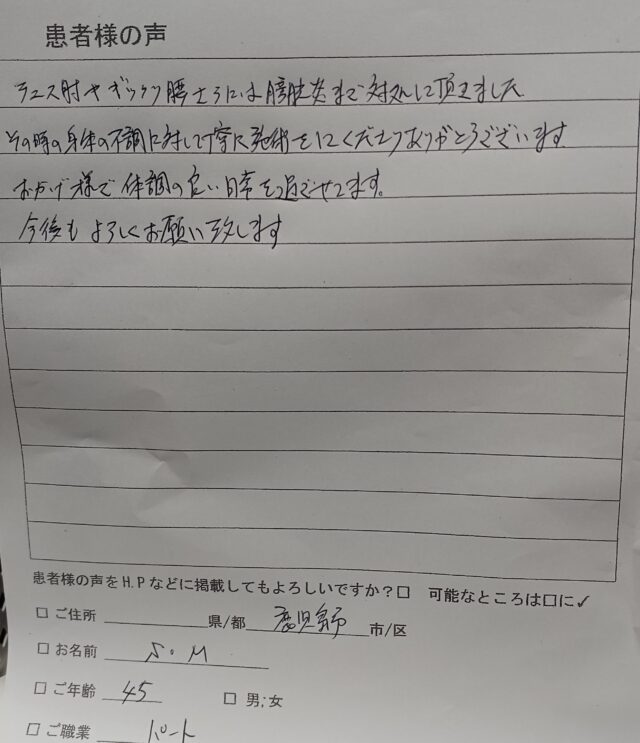 患者様の声
テニス肘やギックリ腰さらには膀胱炎まで対処して頂きました
その時の身体の不調に対して丁寧に施術をしてくださりありがとうございます
おかげ様で体調の良い日常を過ごせてます。
今後もよろしくお願い致します
患者様の声をH.Pなどに掲載してもよろしいですか?□ 可能なところは□に✓
□ ご住所 県/都 鹿児島 市/区
□ お名前 S.M
□ ご年齢 45 □ 男;女
□ ご職業 パート